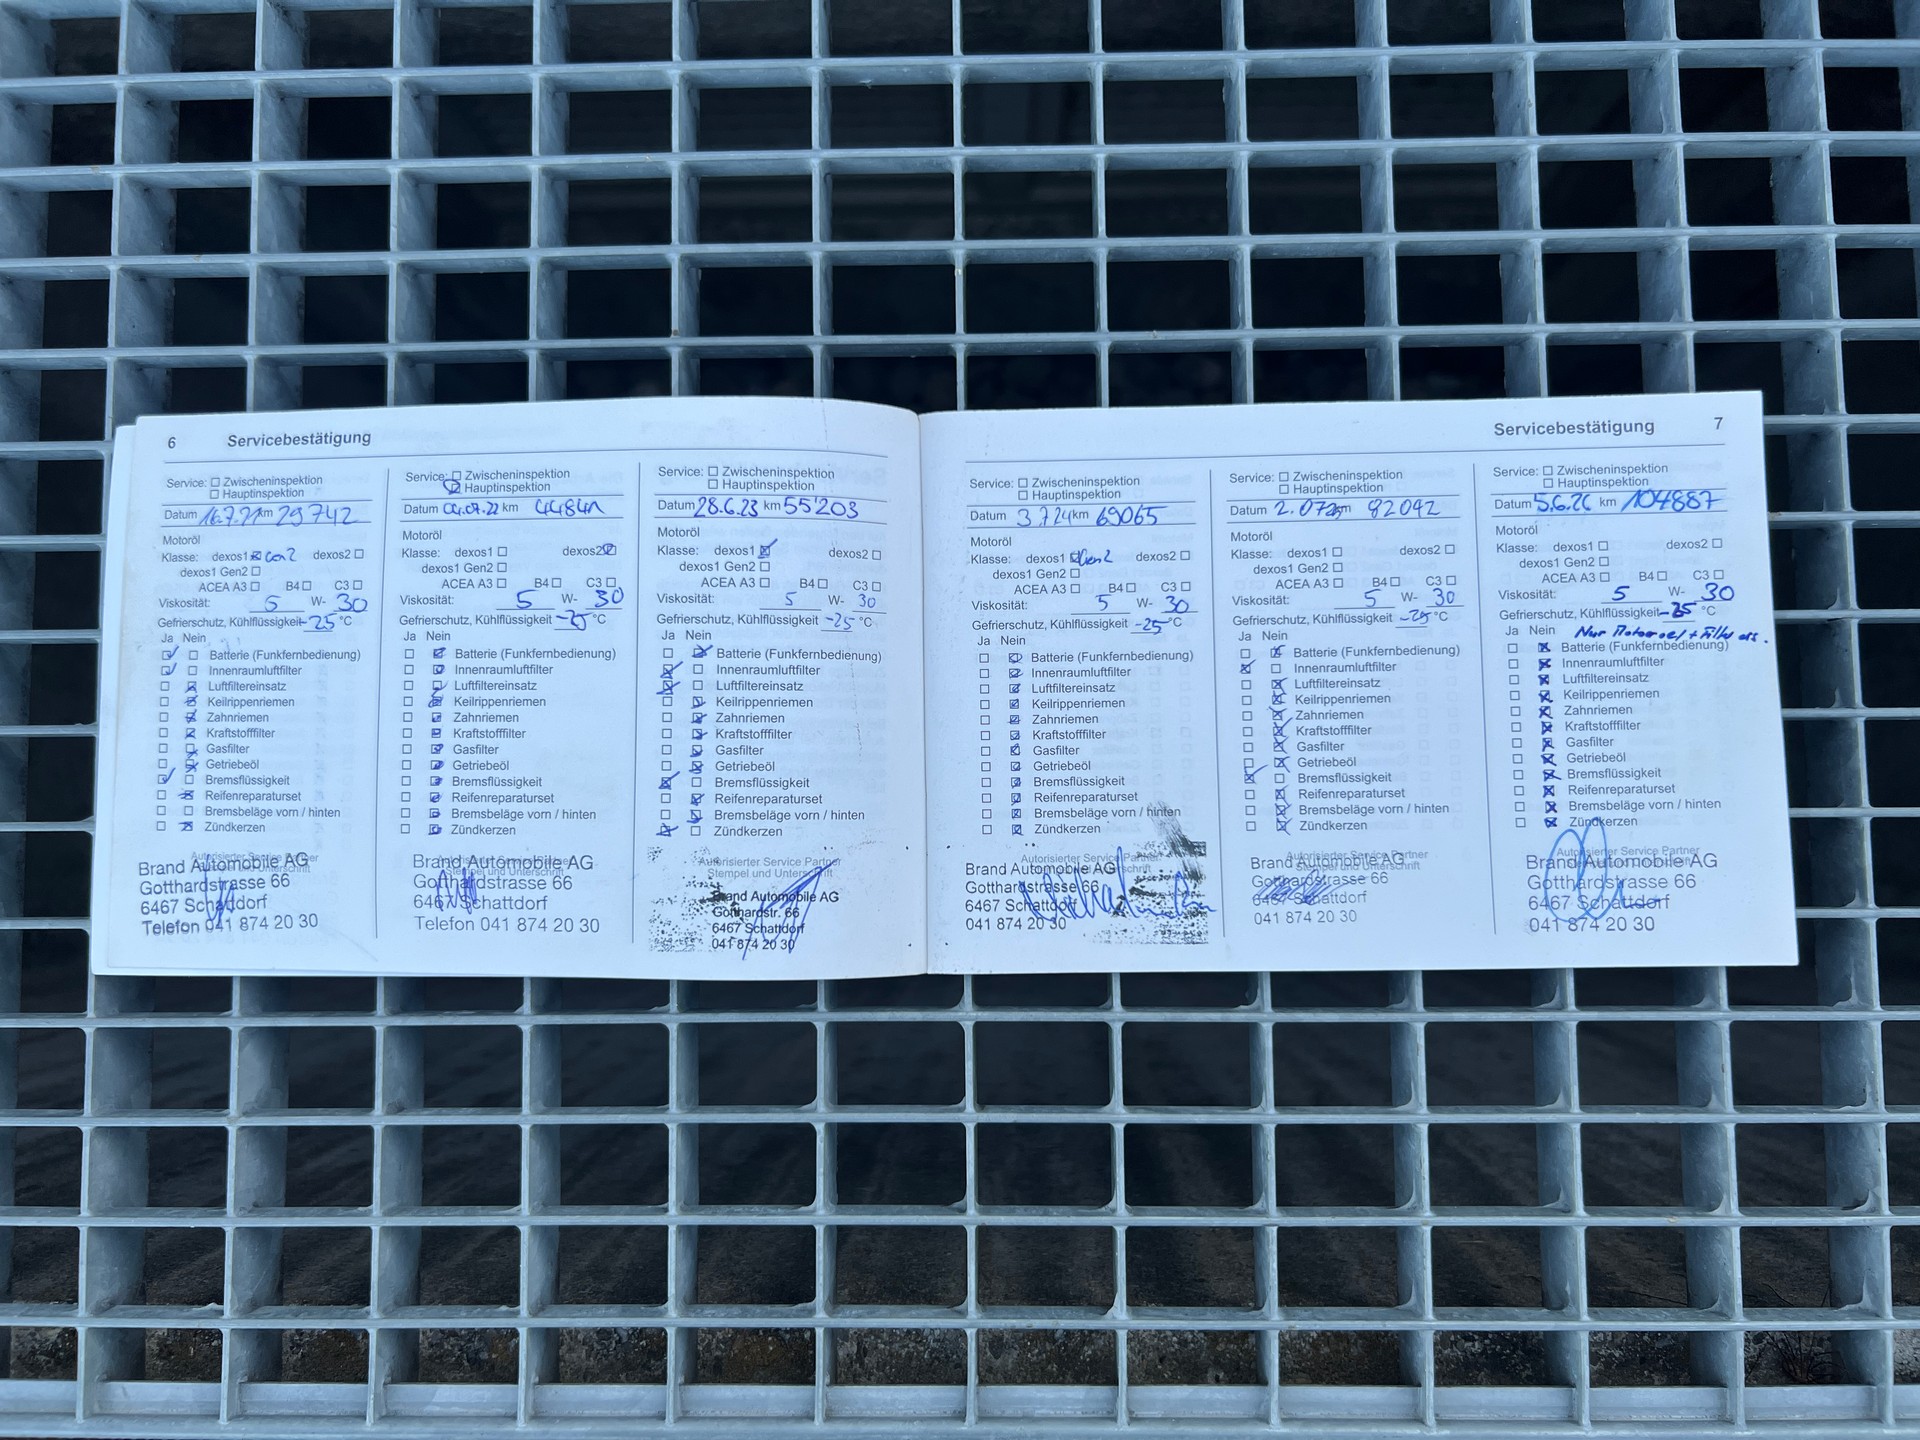 6 Servicebestätigung
Service: Zwischeninspektion
Hauptinspektion
Datum 16.7.21 km 29742
Motoröl
Klasse: dexos1 Gen2 dexos2
dexos1 Gen2
ACEA A3 B4 C3
Viskosität: 5 W- 30
Gefrierschutz, Kühlflüssigkeit -25 °C
Ja Nein
Batterie (Funkfernbedienung)
Innenraumluftfilter
Luftfiltereinsatz
Keilrippenriemen
Zahnriemen
Kraftstofffilter
Gasfilter
Getriebeöl
Bremsflüssigkeit
Reifenreparaturset
Bremsbeläge vorn / hinten
Zündkerzen
Autorisierter Service Partner
Brand Automobile AG
Gotthardstrasse 66
6467 Schattdorf
Telefon 041 874 20 30
Service: Zwischeninspektion
Hauptinspektion
Datum 04.07.22 km 44841
Motoröl
Klasse: dexos1 dexos2
dexos1 Gen2
ACEA A3 B4 C3
Viskosität: 5 W- 30
Gefrierschutz, Kühlflüssigkeit -25 °C
Ja Nein
Batterie (Funkfernbedienung)
Innenraumluftfilter
Luftfiltereinsatz
Keilrippenriemen
Zahnriemen
Kraftstofffilter
Gasfilter
Getriebeöl
Bremsflüssigkeit
Reifenreparaturset
Bremsbeläge vorn / hinten
Zündkerzen
Autorisierter Service Partner
Stempel und Unterschrift
Brand Automobile AG
Gotthardstrasse 66
6467 Schattdorf
Telefon 041 874 20 30
Service: Zwischeninspektion
Hauptinspektion
Datum 28.6.23 km 55'203
Motoröl
Klasse: dexos1 dexos2
dexos1 Gen2
ACEA A3 B4 C3
Viskosität: 5 W- 30
Gefrierschutz, Kühlflüssigkeit -25 °C
Ja Nein
Batterie (Funkfernbedienung)
Innenraumluftfilter
Luftfiltereinsatz
Keilrippenriemen
Zahnriemen
Kraftstofffilter
Gasfilter
Getriebeöl
Bremsflüssigkeit
Reifenreparaturset
Bremsbeläge vorn / hinten
Zündkerzen
Autorisierter Service Partner
Stempel und Unterschrift
Brand Automobile AG
Gotthardstr. 66
6467 Schattdorf
041 874 20 30
Servicebestätigung 7
Service: Zwischeninspektion
Hauptinspektion
Datum 3.7.24 km 69065
Motoröl
Klasse: dexos1 Gen2 dexos2
dexos1 Gen2
ACEA A3 B4 C3
Viskosität: 5 W- 30
Gefrierschutz, Kühlflüssigkeit -25 °C
Ja Nein
Batterie (Funkfernbedienung)
Innenraumluftfilter
Luftfiltereinsatz
Keilrippenriemen
Zahnriemen
Kraftstofffilter
Gasfilter
Getriebeöl
Bremsflüssigkeit
Reifenreparaturset
Bremsbeläge vorn / hinten
Zündkerzen
Autorisierter Service Partner
Brand Automobile AG
Gotthardstrasse 66
6467 Schattdorf
041 874 20 30
Service: Zwischeninspektion
Hauptinspektion
Datum 2.07.25 km 82042
Motoröl
Klasse: dexos1 dexos2
dexos1 Gen2
ACEA A3 B4 C3
Viskosität: 5 W- 30
Gefrierschutz, Kühlflüssigkeit -25 °C
Ja Nein
Batterie (Funkfernbedienung)
Innenraumluftfilter
Luftfiltereinsatz
Keilrippenriemen
Zahnriemen
Kraftstofffilter
Gasfilter
Getriebeöl
Bremsflüssigkeit
Reifenreparaturset
Bremsbeläge vorn / hinten
Zündkerzen
Autorisierter Service Partner
Brand Automobile AG
Gotthardstrasse 66
6467 Schattdorf
041 874 20 30
Service: Zwischeninspektion
Hauptinspektion
Datum 5.6.26 km 104887
Motoröl
Klasse: dexos1 dexos2
dexos1 Gen2
ACEA A3 B4 C3
Viskosität: 5 W- 30
Gefrierschutz, Kühlflüssigkeit -25 °C
Ja Nein Nur Motoroel + Filter
Batterie (Funkfernbedienung)
Innenraumluftfilter
Luftfiltereinsatz
Keilrippenriemen
Zahnriemen
Kraftstofffilter
Gasfilter
Getriebeöl
Bremsflüssigkeit
Reifenreparaturset
Bremsbeläge vorn / hinten
Zündkerzen
Autorisierter Service Partner
Brand Automobile AG
Gotthardstrasse 66
6467 Schattdorf
041 874 20 30